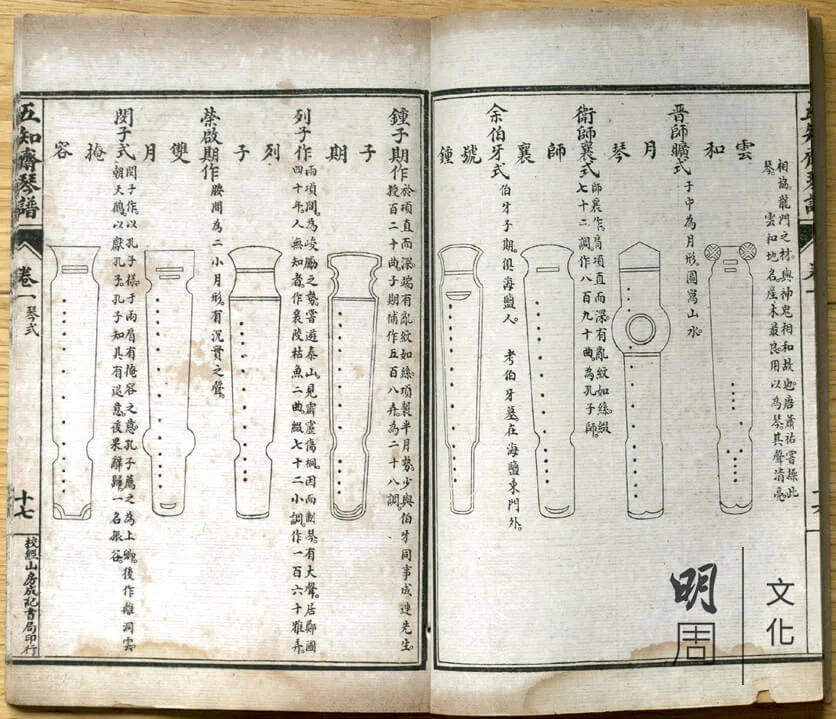 五知齋琴譜
卷一
相協龍門之材與神鬼相和故也唐蕭祐嘗操此
琴 雲和地名産木最良用以為琴其聲清亮
雲和
晋師曠式
于中為月形圓寫山水
月琴
衛師襄式
師襄作肩項直而深有亂紋如絲綴
七十二調作八百九十曲為孔子師
師襄
余伯牙式
伯牙子期俱海鹽人 考伯牙墓在海鹽東門外
號鍾
鍾子期作
於項直而深端有亂紋如絲項製半月勢少與伯牙同事成連先生
授百二十曲子期補作五百八弄為二十八調
子期
列子作
而項間為峻勵之勢嘗遊泰山見霹靂傷桐因而斲琴有大聲居鄭國
四十年人無知者作襄陵枯魚二曲綴七十二小調作一百六十雜弄
列子
榮啟期作
腰間為二小月形有沉實之聲
雙月
閔子式
閔子作以孔子樣子兩肩有掩容之意孔子薦之為上卿後作離洞雲
朝天鵬以獻孔子孔子知其有退意後果辭歸一名振谷
掩容
五知齋琴譜
卷一 琴式
十七
校經山房成記書局印行
明周
文化